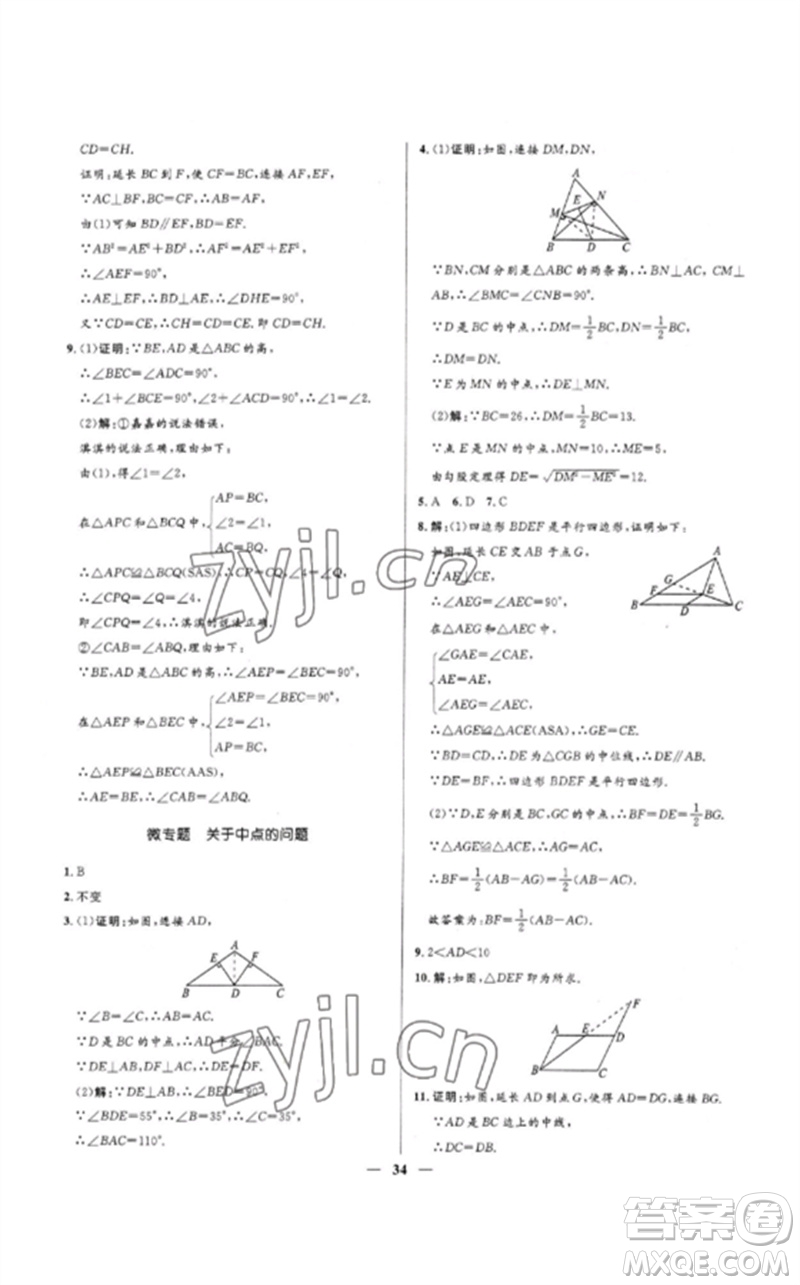 CD=CH.
证明:延长 BC 到 F,使 CF=BC,连接 AF,EF,
∵AC⊥BF,BC=CF,∴AB=AF,
由(1)可知 BD∥EF,BD=EF.
∵AB²=AE²+BD²,∴AF²=AE²+EF²,
∴∠AEF=90°,
∴AE⊥EF,∴BD⊥AE,∴∠DHE=90°,
又∵CD=CE,∴CH=CD=CE,即 CD=CH.
9.(1)证明:∵BE,AD 是△ABC 的高,
∴∠BEC=∠ADC=90°,
∴∠1+∠BCE=90°,∠2+∠BCE=90°,∴∠1=∠2.
(2)解:①嘉嘉的说法错误,
淇淇的说法正确,理由如下:
由(1),得∠1=∠2,
在△APC 和△BCQ 中,
AP=BC,
∠2=∠1,
AC=BQ,
∴△APC≌△BCQ(SAS),∴CP=CQ,∠4=∠Q,
∴∠CPQ=∠Q=∠4,
即∠CPQ=∠4,∴淇淇的说法正确.
②∠CAB=∠ABQ,理由如下:
∵BE,AD 是△ABC 的高,∴∠AEP=∠BEC=90°,
在△AEP 和△BEC 中,
∠AEP=∠BEC=90°,
∠2=∠1,
AP=BC,
∴△AEP≌△BEC(AAS),
∴AE=BE,∴∠CAB=∠ABQ.
微专题 关于中点的问题
1. B
2. 不变
3.(1)证明:如图,连接 AD,
A
E
F
B
D
C
∵∠B=∠C,∴AB=AC.
∵D 是 BC 的中点,∴AD 平分∠BAC.
∵DE⊥AB,DF⊥AC,∴DE=DF.
(2)解:∵DE⊥AB,∴∠BED=90°.
∵∠BDE=55°,∴∠B=35°,∴∠C=35°,
∴∠BAC=110°.
4.(1)证明:如图,连接 DM,DN,
A
E
N
M
B
D
C
∵BN,CM 分别是△ABC 的两条高,∴BN⊥AC, CM⊥
AB,∴∠BMC=∠CNB=90°.
∵D 是 BC 的中点,∴DM=1/2BC,DN=1/2BC,
∴DM=DN.
∵E 为 MN 的中点,∴DE⊥MN.
(2)解:∵BC=26,∴DM=1/2BC=13.
∵点 E 是 MN 的中点,MN=10,∴ME=5,
由勾股定理得 DE=√(DM²-ME²)=12.
5. A 6. D 7. C
8.解:(1)四边形 BDEF 是平行四边形,证明如下:
如图,延长 CE 交 AB 于点 G,
A
G
F
E
B
D
C
∵AE⊥CE,
∴∠AEG=∠AEC=90°,
在△AEG 和△AEC 中,
∠GAE=∠CAE,
AE=AE,
∠AEG=∠AEC,
∴△AGE≌△ACE(ASA),∴GE=CE.
∵BD=CD,∴DE 为△CGB 的中位线,∴DE∥AB.
∵DE=BF,∴四边形 BDEF 是平行四边形.
(2)∵D,E 分别是 BC,GC 的中点,∴BF=DE=1/2BG.
∵△AGE≌△ACE,∴AG=AC,
∴BF=1/2(AB-AG)=1/2(AB-AC).
故答案为:BF=1/2(AB-AC).
9. 2<AD<10
10.解:如图,△DEF 即为所求.
F
A
E
D
B
C
11.证明:如图,延长 AD 到点 G,使得 AD=DG,连接 BG.
∵AD 是 BC 边上的中线,
∴DC=DB.
— 34 —
zyjl.cn
zyjl.cn
答案卷
MXQE.COM